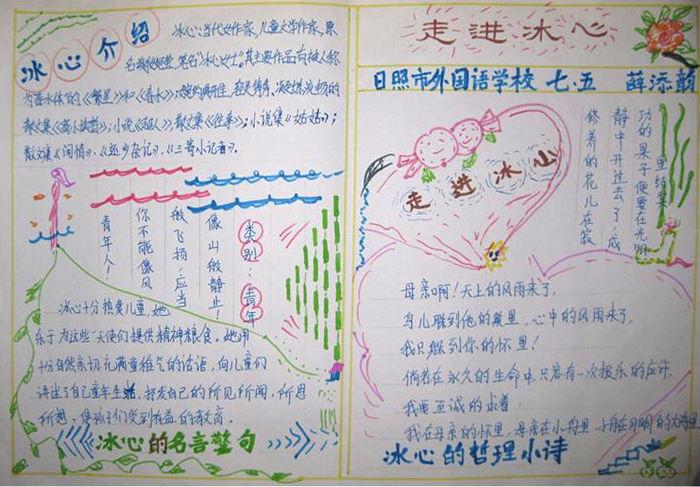 冰心介绍
冰心：当代女作家，儿童文学作家，原
名谢婉莹，笔名"冰心女士"，其主要作品有被人称
为春水体的《繁星》和《春水》；
散文集《寄小读者》；小说《超人》；散文集《往事》；小说集《姑姑》；
散文集《闲情》、《还乡杂记》、《三寄小读者》。
类别：青年
像山般静止！
般飞扬；应当
你不能像风
青年人！
冰心十分热爱儿童，她
乐于为这些"天使们提供精神粮食。她用
十分自然亲切充满童稚气的话语，向儿童们
讲述了自己童年生活，抒发自己的所见所闻，所思
所想，使孩子们受到有益的教育。
冰心的名言警句
走进冰心
日照市外国语学校 七.五 薛添
走进冰山
里结果
功的果子便要在光明
静中开过去了，成
修养的花儿在寂
母亲啊！天上的风雨来了，
鸟儿躲到他的巢里，心中的风雨来了，
我只躲到你的怀里！
倘若在永久的生命中，只容有一次极乐的应许，
我要至诚的求着：
我在母亲的怀里，母亲在小舟里，小舟在月明的大海里
冰心的哲理小诗